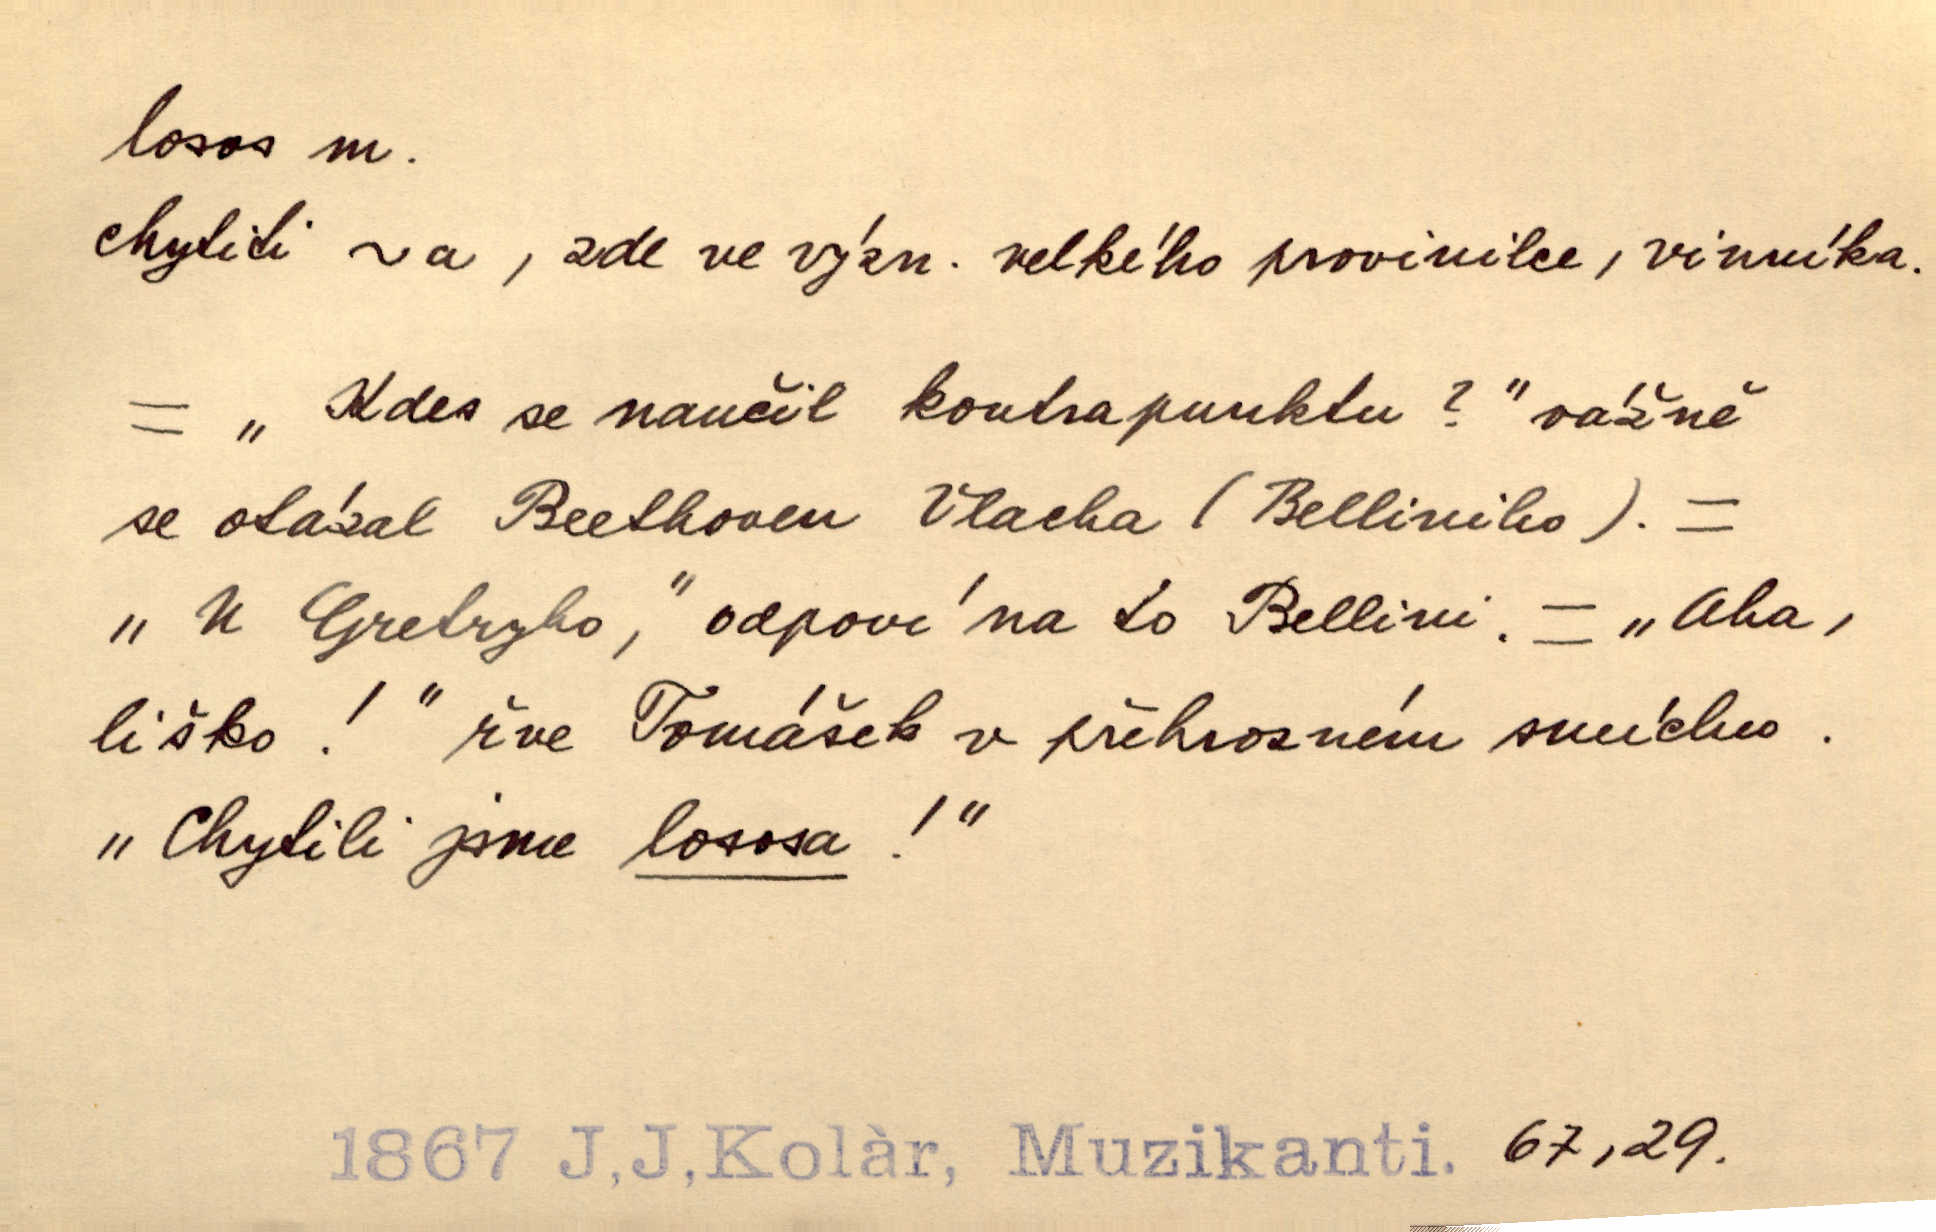 losos m.
chytiti ~a, zde ve význ. velkého provinilce, vinníka.
= „Kdes se naučil kontrapunktu?" vážně
se otázal Beethoven Vlacha (Belliniho). =
„U Gretryho," odpoví na to Bellini. = „Aha,
liško!" řve Tomášek v přehrozném smíchu.
„Chytili jsme lososa!"
1867 J,J,Kolàr, Muzikanti. 67,29.